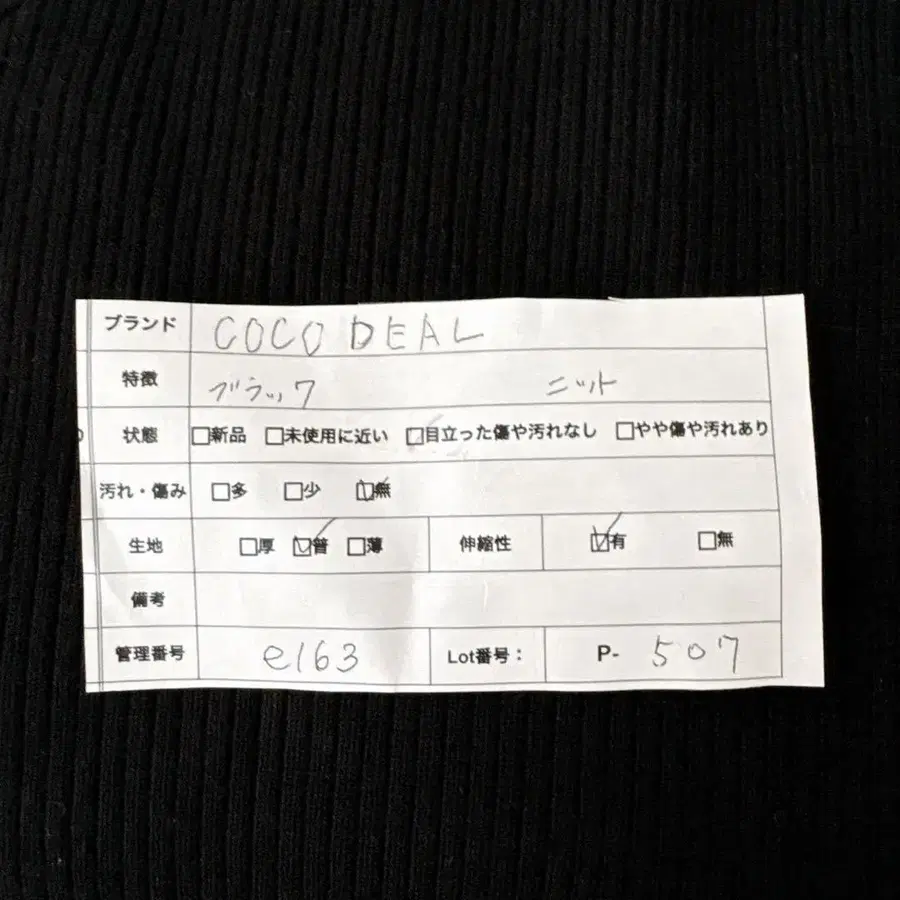 ブランド COCO DEAL
特徴 ブラック ニット
状態 □新品 □未使用に近い ☑目立った傷や汚れなし □やや傷や汚れあり
汚れ・傷み □多 □少 ☑無
生地 □厚 ☑普 □薄 伸縮性 ☑有 □無
備考
管理番号 e163 Lot番号： P- 507